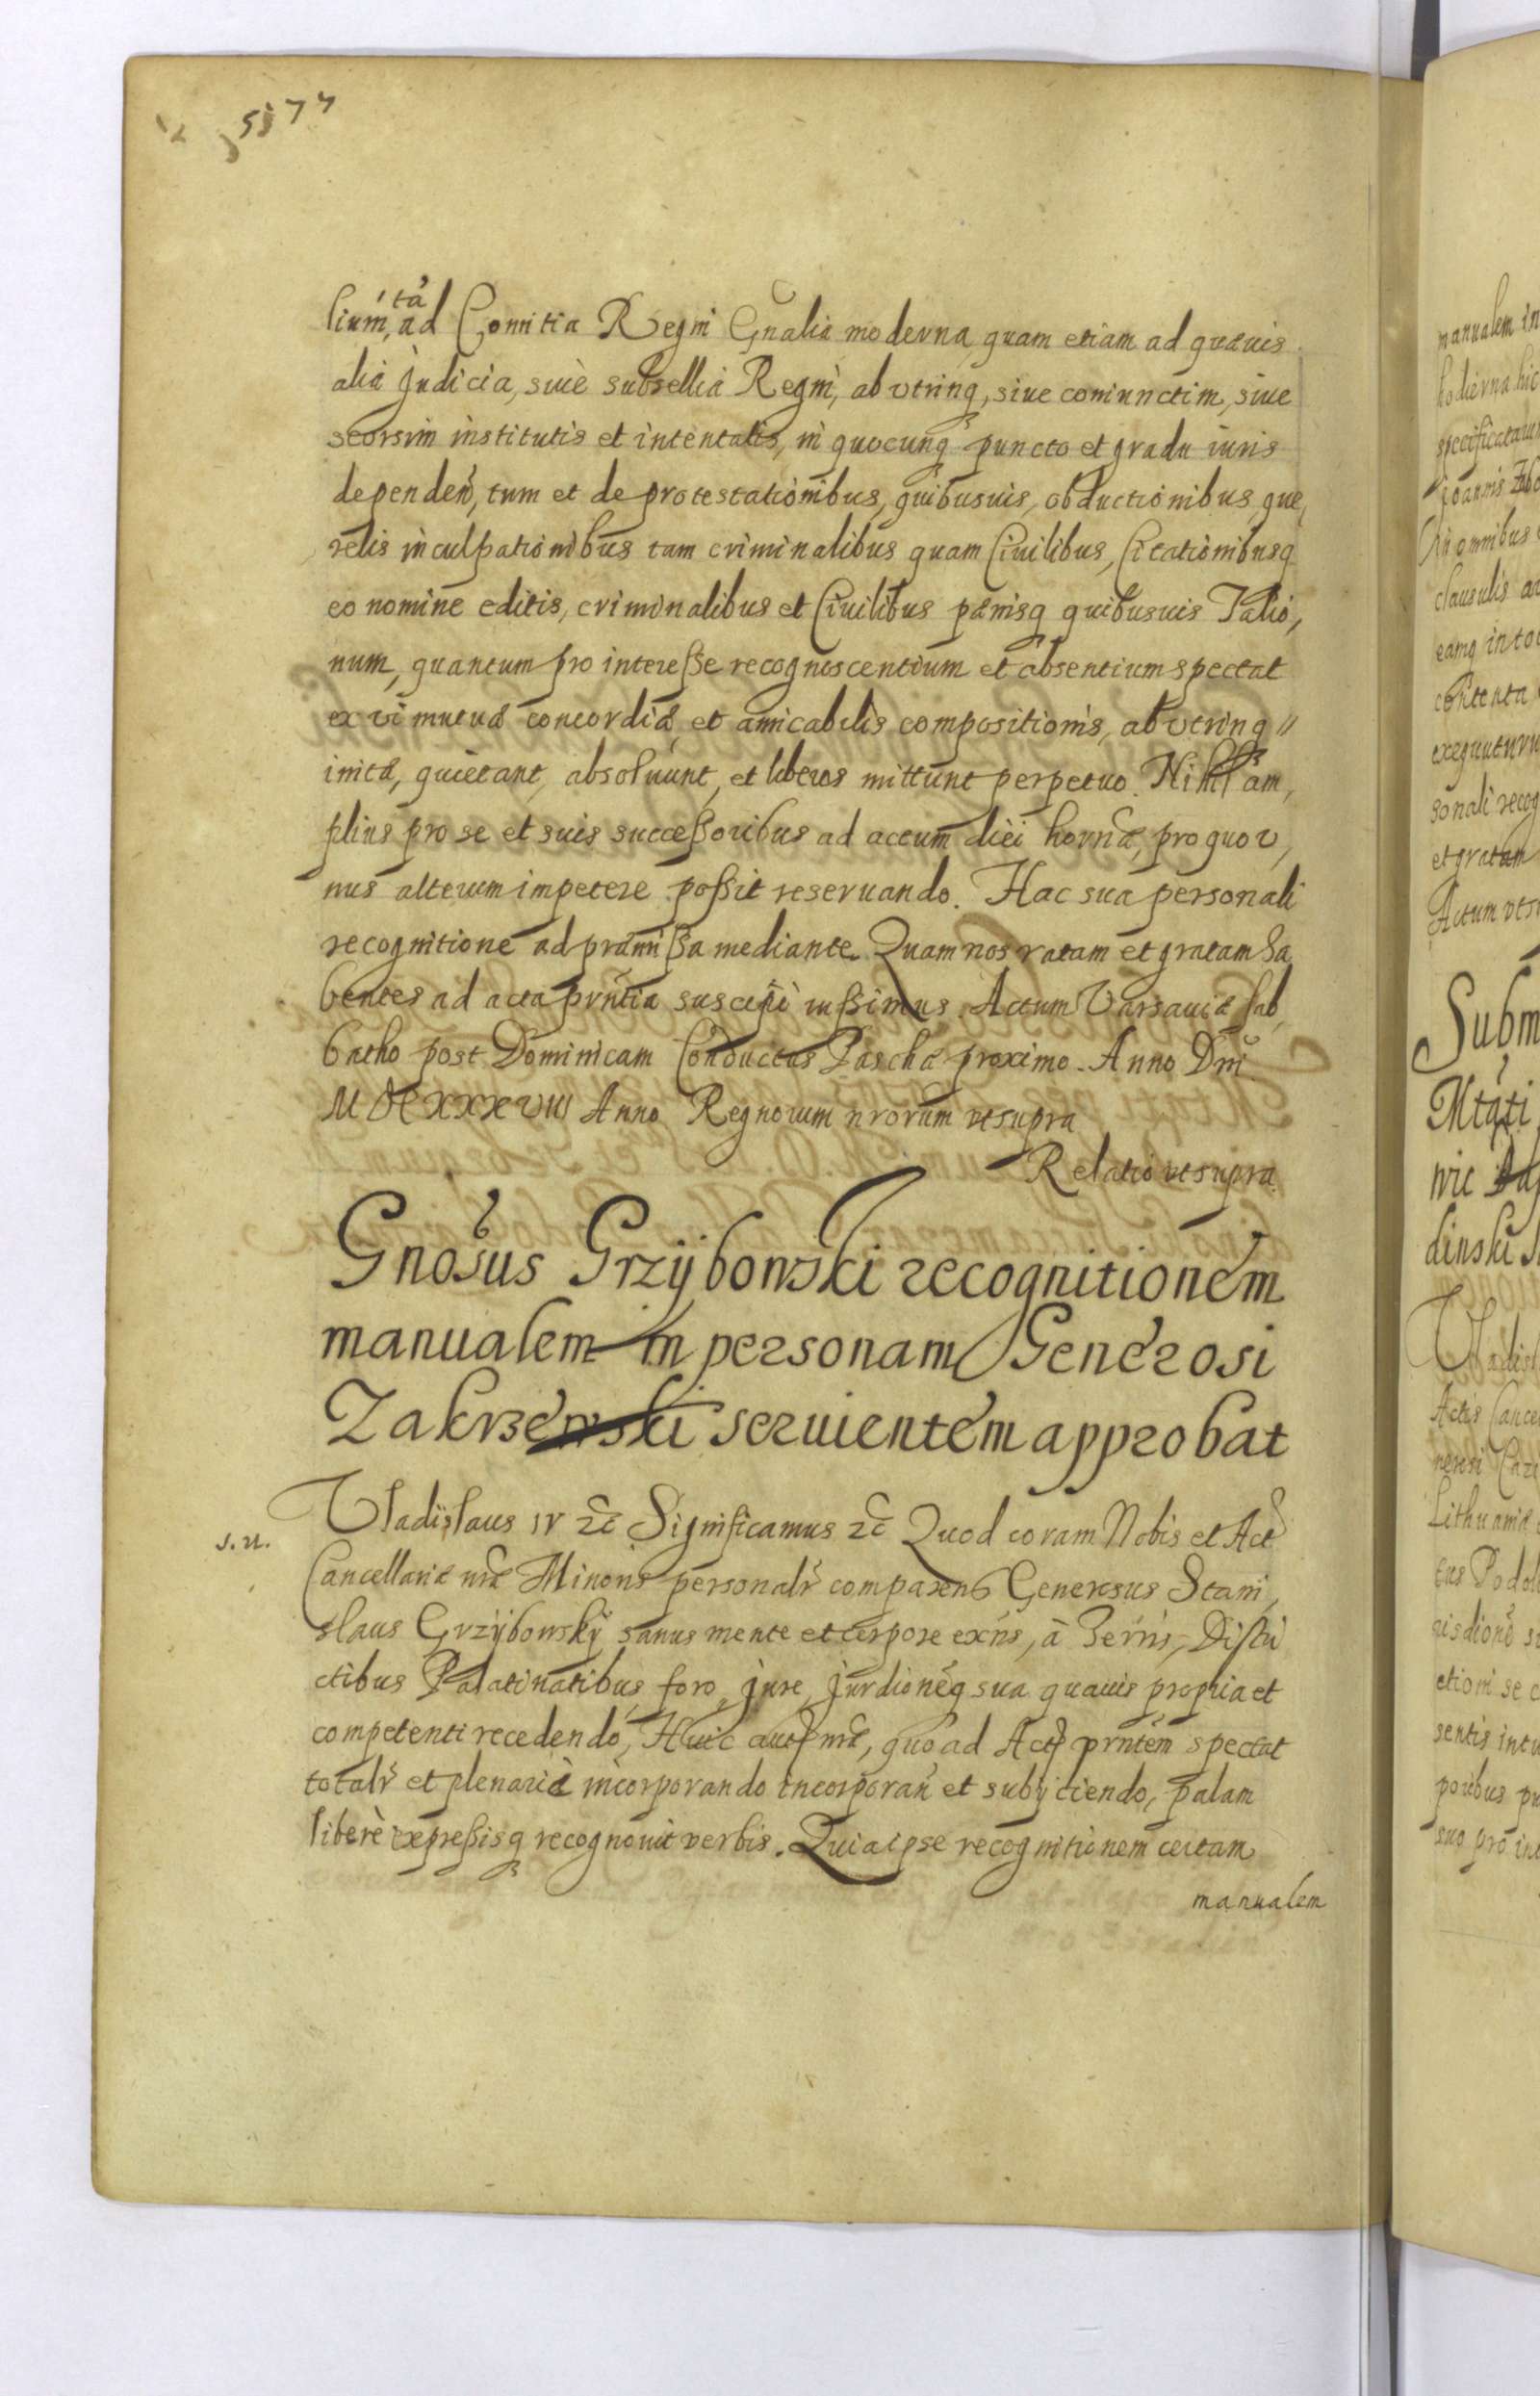 5577
lium, ta ad Comitia Regni Gnalia moderna quam etiam ad quævis
alia Judicia, siuè subsellia Regni, ab utrinq, siue coniunctim, siue
seorsim institutis et intentatis, in quocunq puncto et gradu iuris
dependeń, tum et de protestationibus, quibusuis, obductionibus, que,
relis inculpationibus tam criminalibus quam Ciuilibus, Citationibusq
eo nomine editis, criminalibus et Ciuilibus pænisq quibusuis Talio,
num, quantum pro interesse recognoscentium et absentium spectat
ex vi mutuæ concordiæ et amicabilis compositionis, ab utrinq
initæ, quietant, absoluunt, et liberos mittunt perpetuo. Nihil am,
plius pro se et suis successoribus ad actum diei hornæ, pro quo v,
nus alterum impetere possit reseruando. Hac sua personali
recognitione ad præmissa mediante. Quam nos ratam et gratam ha
bentes ad acta prntia suscepi iussimus. Actum Varsauiæ sab,
batho post Dominicam Conductus Paschæ proximo. Anno Dni
MDCXXXVIII Anno Regnorum nrorum vt supra
Relatio vt supra.
Gnosus Grzÿbowski recognitionem
manualem in personam Generosi
Zakrzewski seruientem approbat
s. n.
Vladislaus IV &c Significamus &c Quod coram Nobis et Act
Cancellariæ nræ Minoris personalr comparens Generosus Stani,
slaus Grzÿbowskÿ sanus mente et corpore exns, à Terris, Distri
ctibus Palatinatibus, foro, jure, jurdioneq sua quauis propria et
competenti recedendo, Huic autem nræ, quo ad Actum prntem spectat
totalr et plenariè incorporando incorporań et subÿciendo, palam
liberè expressisq recognouit verbis. Quia ipse recognitionem certam
manualem
manualem in
hodierna hic
Joannis
in omnibus
clausulis
eamq in to
contenta
sonali recog
et gratam
Actum vt s
Subm
Mtati
dinski
Vladis
Actis Cance
Lithuaniæ
Podol
etioni se
sentis intu
suo pro int